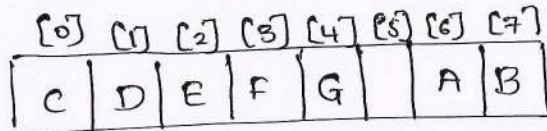 [0] [1] [2] [3] [4] [5] [6] [7]
C D E F G A B